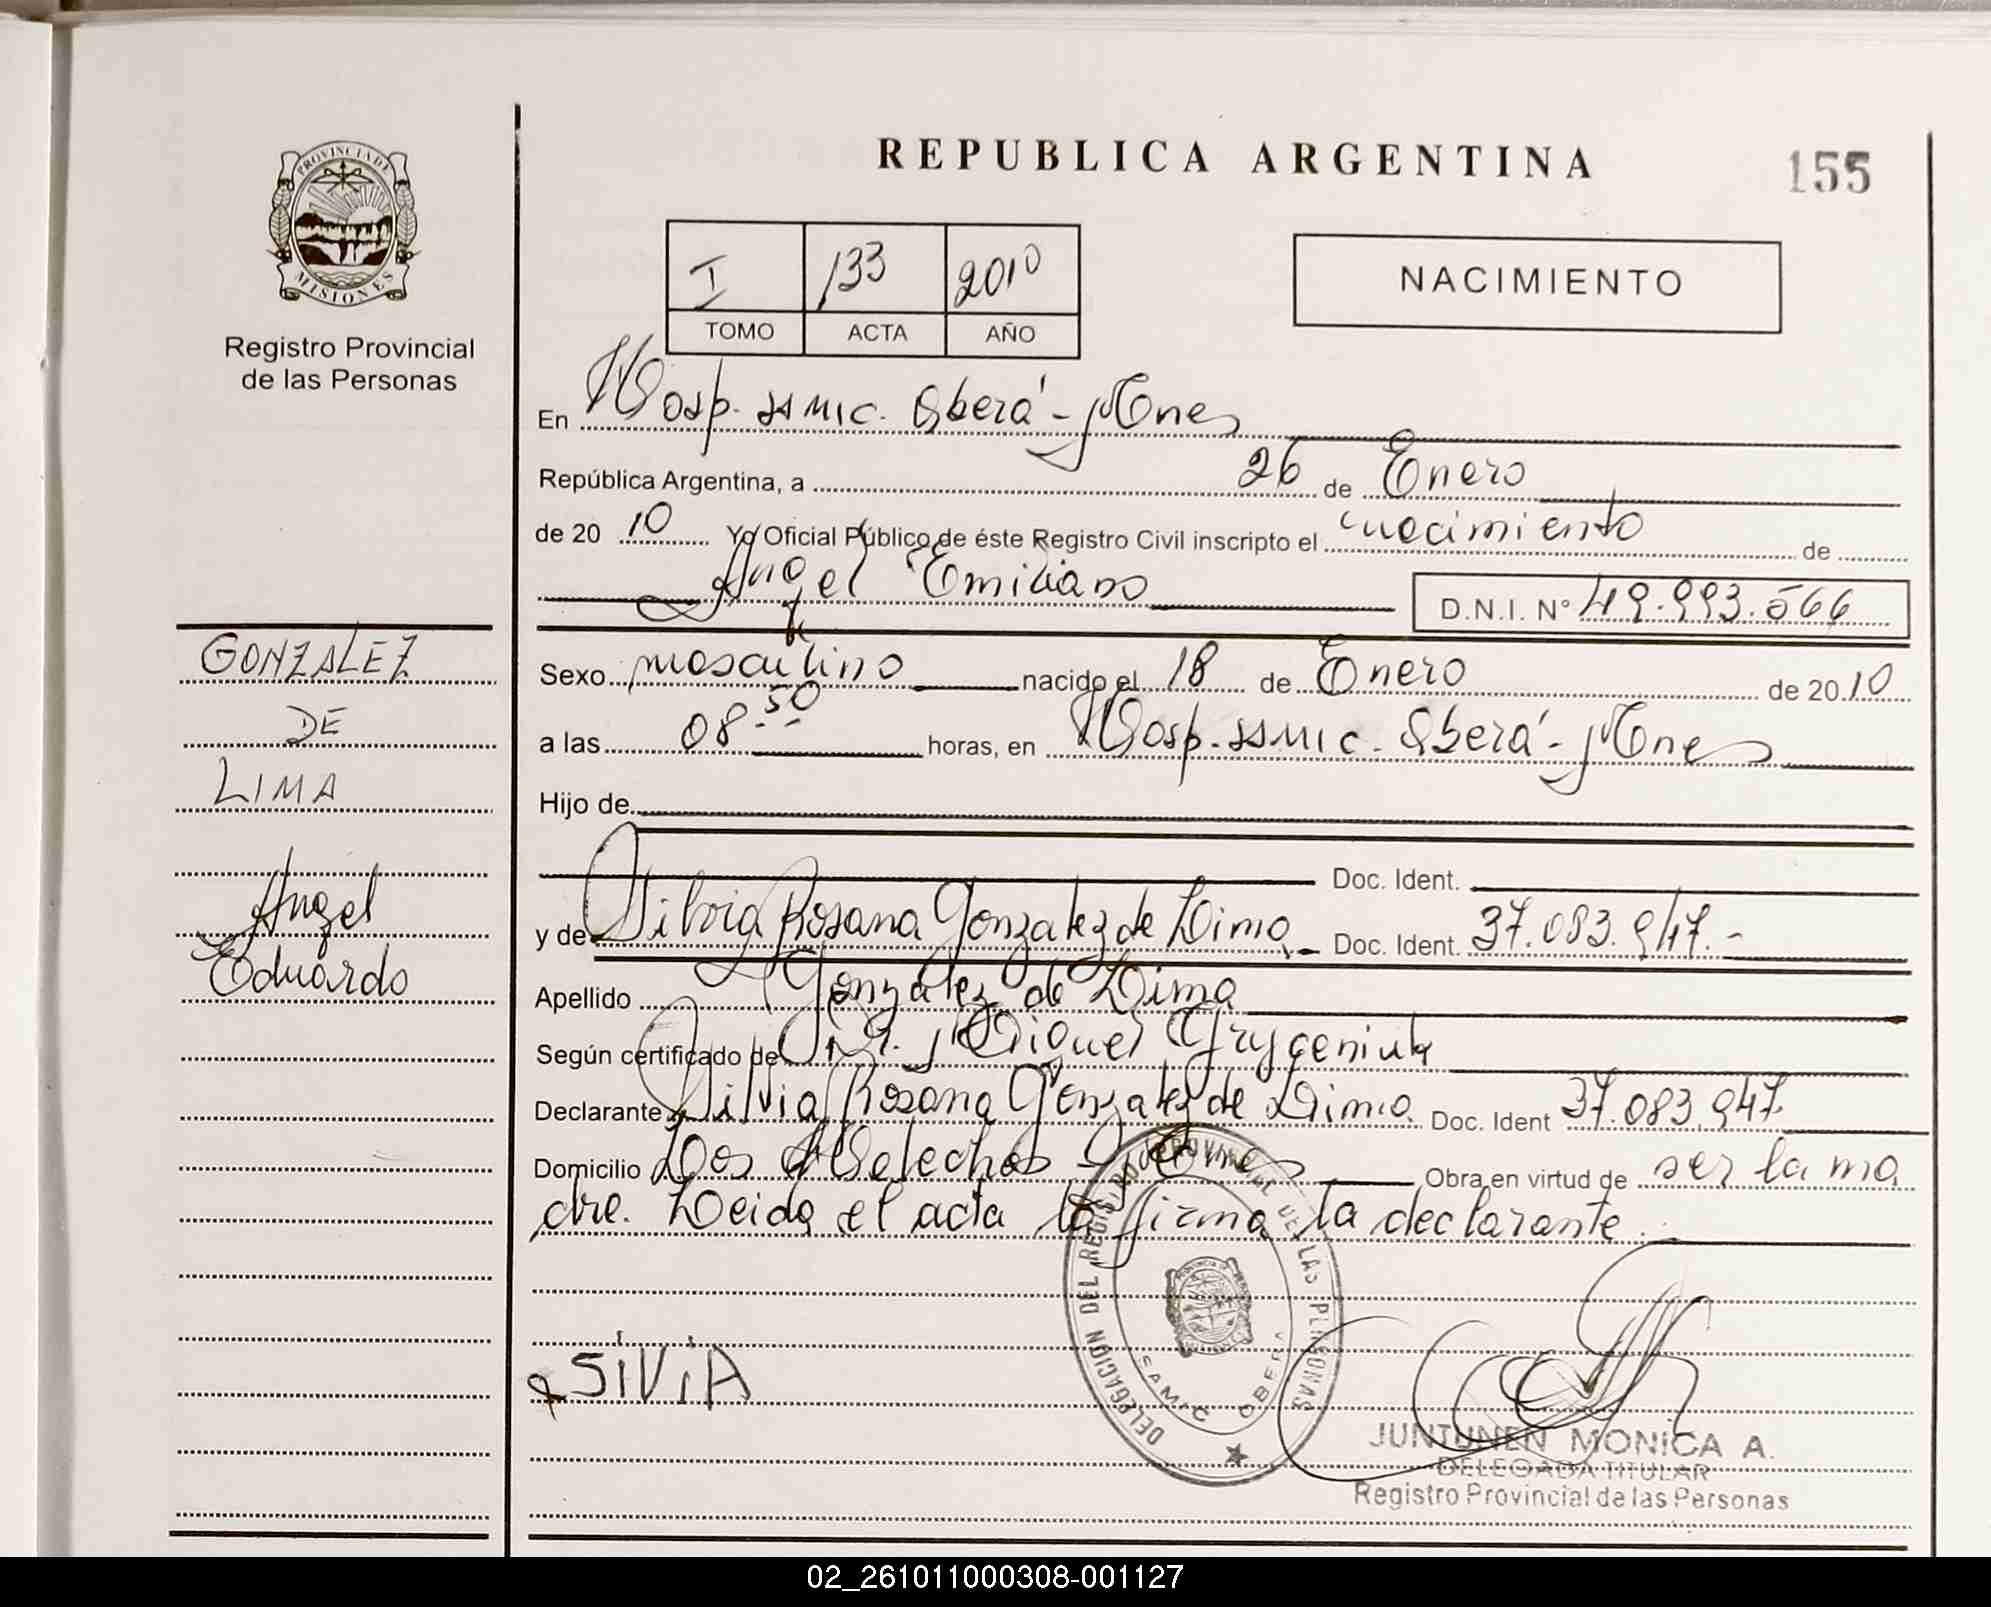 REPUBLICA ARGENTINA
155
PROVINCIA DE
MISIONES
Registro Provincial
de las Personas
I 133 2010
TOMO ACTA AÑO
NACIMIENTO
En Hosp. SAMIC. Oberá - Mnes
República Argentina, a 26 de Enero
de 20 10 Yo Oficial Público de éste Registro Civil inscripto el nacimiento de
Angel Emiliano D.N.I. N° 49.993.566
Sexo masculino nacido el 18 de Enero de 20 10
a las 08-50 horas, en Hosp. SAMIC. Oberá - Mnes
Hijo de
Doc. Ident.
y de Silvia Rosana Gonzalez de Lima Doc. Ident. 37.083.947.-
Apellido Gonzalez de Lima
Según certificado de Dr. Miguel
Declarante Silvia Rosana Gonzalez de Lima Doc. Ident 37.083.947.
Domicilio Los Helechos - Mnes Obra en virtud de ser la ma
dre. Leida el acta la firma la declarante.
GONZALEZ
DE
LIMA
Angel
Eduardo
SiViA
DELEGACION DEL REGISTRO PROVINCIAL DE LAS PERSONAS
SAMIC OBERA
JUNTUNEN MONICA A.
DELEGADA TITULAR
Registro Provincial de las Personas
02_261011000308-001127